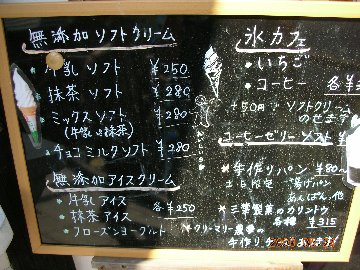 無添加ソフトクリーム
牛乳ソフト ¥250
抹茶ソフト ¥280
ミックスソフト ¥280
(牛乳&抹茶)
チョコミルクソフト ¥280
無添加アイスクリーム
牛乳アイス
抹茶アイス 各¥250
フローズンヨーグルト
氷カフェ
いちご
コーヒー 各¥
+50円でソフトクリーム
のせます
コーヒーゼリーソフト
手作りパン ¥80〜
土日限定 揚げパン
あんぱん、他
三葉製菓のカリントウ
各種 ¥315
クリーマリー農夢の
手作りチーズあります!